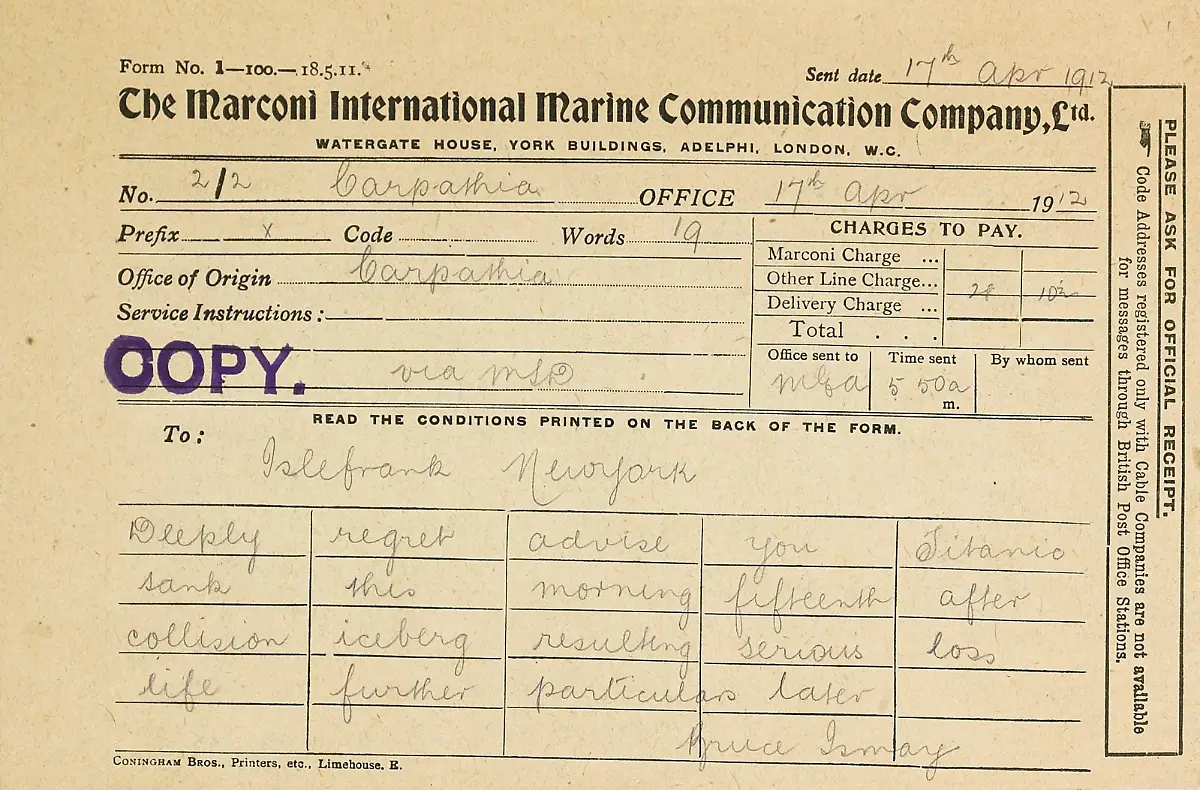 Form No. 1—100.—18.5.11.
Sent date 17th Apr 1912
The Marconi International Marine Communication Company, Ltd.
WATERGATE HOUSE, YORK BUILDINGS, ADELPHI, LONDON, W.C.
No. 2/2 Carpathia OFFICE 17th Apr 1912
Prefix x Code Words 19
Office of Origin Carpathia
Service Instructions :
COPY. via MSD
CHARGES TO PAY.
Marconi Charge ...
Other Line Charge...
Delivery Charge ...
Total . . .
Office sent to Time sent By whom sent
5 50a
m.
READ THE CONDITIONS PRINTED ON THE BACK OF THE FORM.
To :
Islefrank Newyork
Deeply regret advise you Titanic
sank this morning fifteenth after
collision iceberg resulting serious loss
life further particulars later
Bruce Ismay
CONINGHAM BROS., Printers, etc., Limehouse. E.
PLEASE ASK FOR OFFICIAL RECEIPT.
Code Addresses registered only with Cable Companies are not available
for messages through British Post Office Stations.